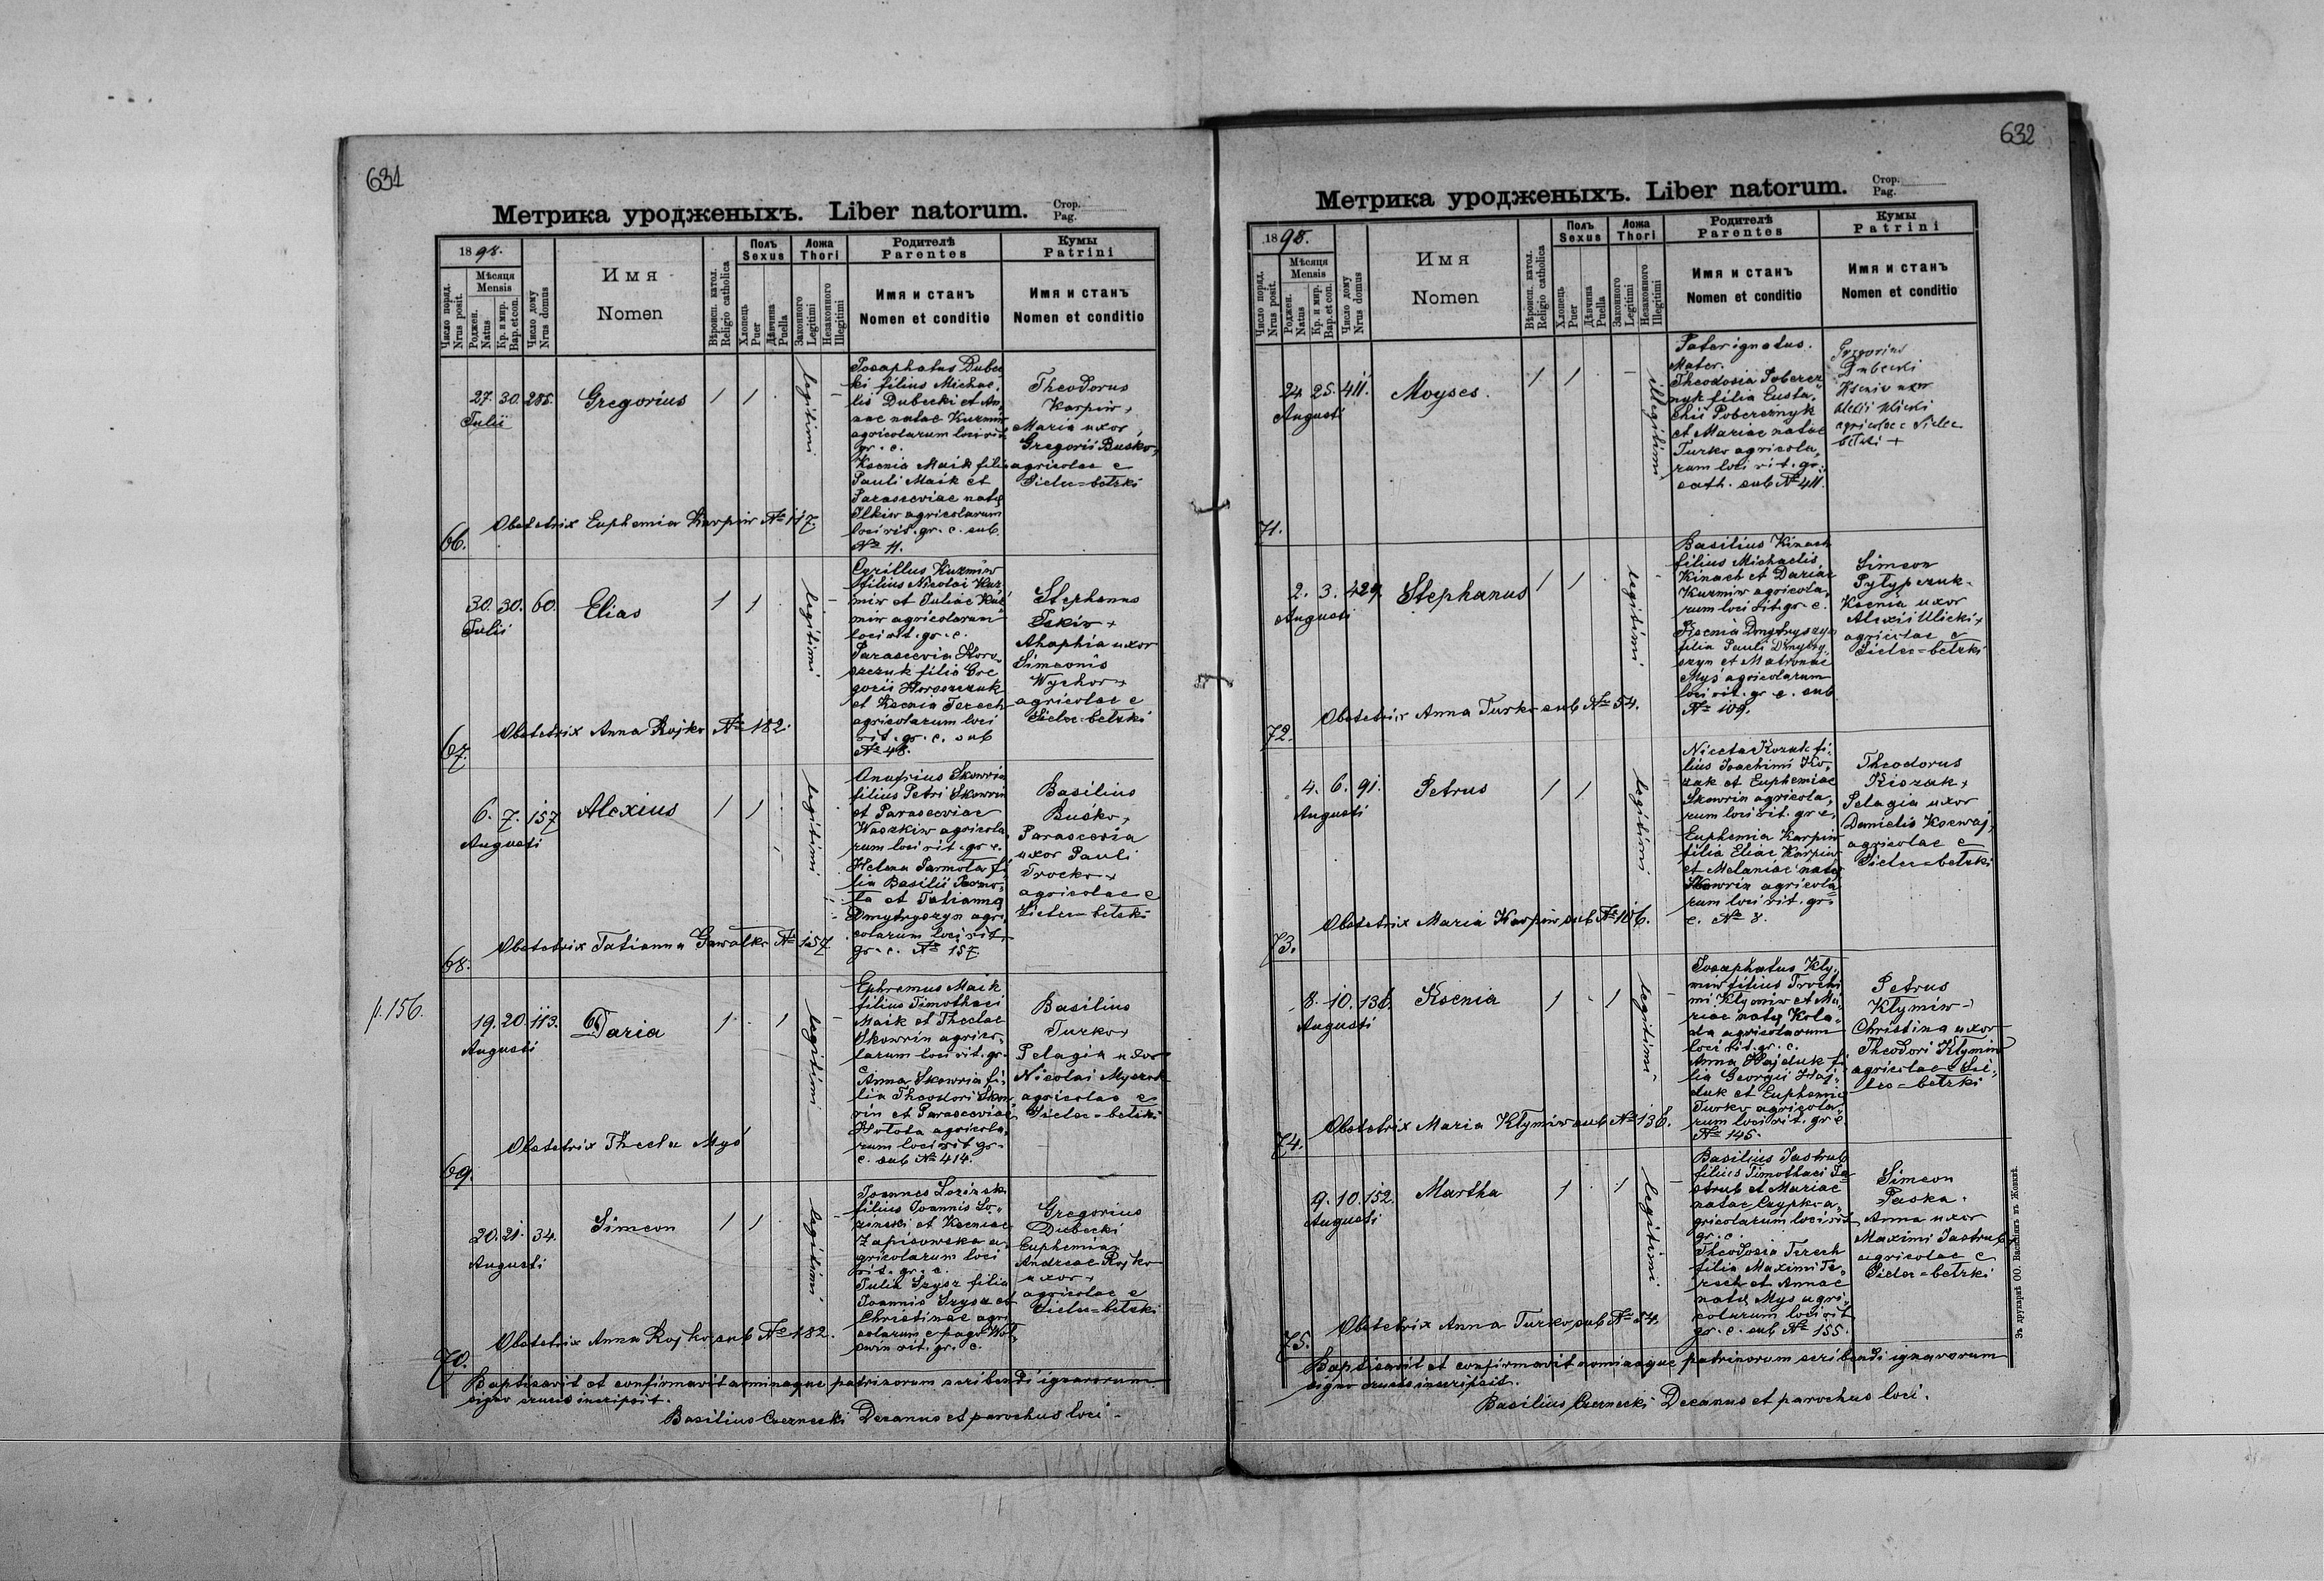 631
Метрика уродженыхъ. Liber natorum. Стор. Pag.
1898.
Число поряд. Nrus posit.
Мѣсяця Mensis
Роджен. Natus
Кр. и мир. Bap. et con.
Число дому Nrus domus
Имя
Nomen
Вѣроисп. катол. Religio catholica
Полъ Sexus
Хлопець Puer
Дѣвчина Puella
Ложа Thori
Законного Legitimi
Незаконного Illegitimi
Родителѣ
Parentes
Имя и станъ
Nomen et conditio
Кумы
Patrini
Имя и станъ
Nomen et conditio
66.
27. 30. 288. Gregorius 1 1 legitimi
Julii
Josaphatus Dubec
ki filius Michae,
lis Dubecki et An,
nae natae Kuzmiw
agricolarum loci rit.
gr. c.
Ksenia Maik filia
Pauli Maik et
Parasceviae natae
Ilkiw agricolarum
loci rit. gr. c. sub
No 11.
Theodorus
Karpiw +
Maria uxor
Gregorii Busko +
agricolae e
Sielec=bełzki
Obstetrix Euphemia Karpiw No 117.
67.
30. 30. 60. Elias 1 1 legitimi
Julii
Cyrillus Kuzmiw
filius Nicolai Kuz
miw et Juliae Kuź
miw agricolarum
loci rit. gr. c.
Parascevia Horo
szczuk filia Gre
gorii Horoszczuk
et Ksenia Terech
agricolarum loci
rit. gr. c. sub
No 48.
Stephanus
Ahaphia uxor
Simeonis
Wychor +
agricolae e
Sielec-bełzki
Obstetrix Anna Rojko No 182.
68.
6. 7. 157 Alexius 1 1 legitimi
Augusti
Onufrius Skowrin
filius Petri Skowrin
et Parasceviae
Waszkiw agricola,
rum loci rit. gr. c.
Helena Parmota fi
lia Basilii Parmo,
ta et Tatianna
Dmytryszyn agri
colarum loci rit.
gr. c. No 157.
Basilius
Busko +
Parascevia
uxor Pauli
Trocko +
agricolae e
Sielec=bełzki
Obstetrix Tatianna Gawalko No 157.
p. 156.
69.
19. 20. 113. Daria 1 1 legitimi
Augusti
Ephremus Maik
filius Timothaei
Maik et Theclae
Skowrin agrico,
larum loci rit. gr.
c.
Anna Skowrin fi,
lia Theodori Skow
rin et Parasceviae
Hołota agricola,
rum loci rit gr.
c. sub No 414.
Basilius
Turko +
Pelagia uxor
Nicolai
agricolae e
Sielec=bełzki
Obstetrix Thecla Myś
70.
20. 21. 34. Simeon 1 1 legitimi
Augusti
Joannes Lozinski
filius Joannis Lo,,
zinski et Kseniae
Zapisowska a,
gricolarum loci
rit. gr. c.
Julia Szysz filia
Joannis Szysz et
Christinae agri
colarum e pago Wol
swin rit. gr. c.
Gregorius
Dubecki
Euphemia
Andreae Rojko
uxor +
agricolae e
Sielec=bełzki
Obstetrix Anna Rojko sub No 182.
Baptisavit et confirmavit nominaque patrinorum scribendi ignarorum
signo crucis inscripsit.
Basilius Czernecki Decanus et parochus loci.
632
Метрика уродженыхъ. Liber natorum. Стор. Pag.
1898.
Число поряд. Nrus posit.
Мѣсяця Mensis
Роджен. Natus
Кр. и мир. Bap. et con.
Число дому Nrus domus
Имя
Nomen
Вѣроисп. катол. Religio catholica
Полъ Sexus
Хлопець Puer
Дѣвчина Puella
Ложа Thori
Законного Legitimi
Незаконного Illegitimi
Родителѣ
Parentes
Имя и станъ
Nomen et conditio
Кумы
Patrini
Имя и станъ
Nomen et conditio
71.
24. 25. 411. Moyses. 1 1 illegitimi
Augusti
Pater ignotus.
Mater.
Theodosia Poberez
nyk filia Eusta,
chii Pobereznyk
et Mariae natae
Turko agricola,
rum loci rit. gr.
cath. sub No 411.
Gregorius
Dubecki
Ksenia uxor
Alexii Ulicki
agricolae e Sielec
bełzki +
72.
2. 3. 429. Stephanus 1 1 legitimi
Augusti
Basilius Kinach
filius Michaelis
Kinach et Dariae
Kuzmiw agricola,
rum loci rit. gr. c.
Dmytryszyn
filia Pauli Dmytry,
szyn et Matronae
Myś agricolarum
loci rit. gr. c. sub
No 109.
Simeon
Pylypczuk
Ksenia uxor
Alexii Ulicki +
agricolae e
Sielec=bełzki
Obstetrix Anna Turko sub No 54.
73.
4. 6. 91. Petrus 1 1 legitimi
Augusti
Niceta Kozak fi,
lius Joachimi Ko,
zak et Euphemiae
Skowrin agricola,
rum loci rit. gr c.
Euphemia Karpiw
filia Eliae Karpiw
et Melaniae natae
Skowrin agricola
rum loci rit. gr.
c. No 8.
Theodorus
Pelagia uxor
Danielis
agricolae e
Sielec=bełzki
Obstetrix Maria Karpiw sub No 106.
74.
8. 10. 136. Ksenia 1 1 legitimi
Augusti
Josaphatus Kly,
miw filius Trochi
mi Klymiw et Ma,
riae natae Kola,
da agricolarum
loci rit. gr. c.
Anna Hajduk fi
lia Georgii Haj,
duk et Euphemia
Turko agricola,
rum loci rit. gr c.
No 145.
Petrus
Klymiw
Christina uxor
Theodori Klymiw
agricolae e Sie,
lec=bełzki
Obstetrix Maria Klymiw sub No 136.
75.
9. 10. 152. Martha 1 1 legitimi
Augusti
Basilius Jastrub
filius Timothaei Ja
strub et Mariae
natae Czypko a,
gricolarum loci rit
gr. c.
Theodosia Terech
filia Maximi Te,
rech et Annae
natae Mys agri,
colarum loci rit
gr. c. sub No 155.
Simeon
Paska.
Anna uxor
Maximi Jastrub +
agricolae e
Sielec=bełzki
Obstetrix Anna Turko sub No 54.
Baptisavit et confirmavit nominaque patrinorum scribendi ignarorum
signo crucis inscripsit.
Basilius Czernecki Decanus et parochus loci.
Зъ друкарнѣ ОО. Василіянъ въ Жовквѣ.